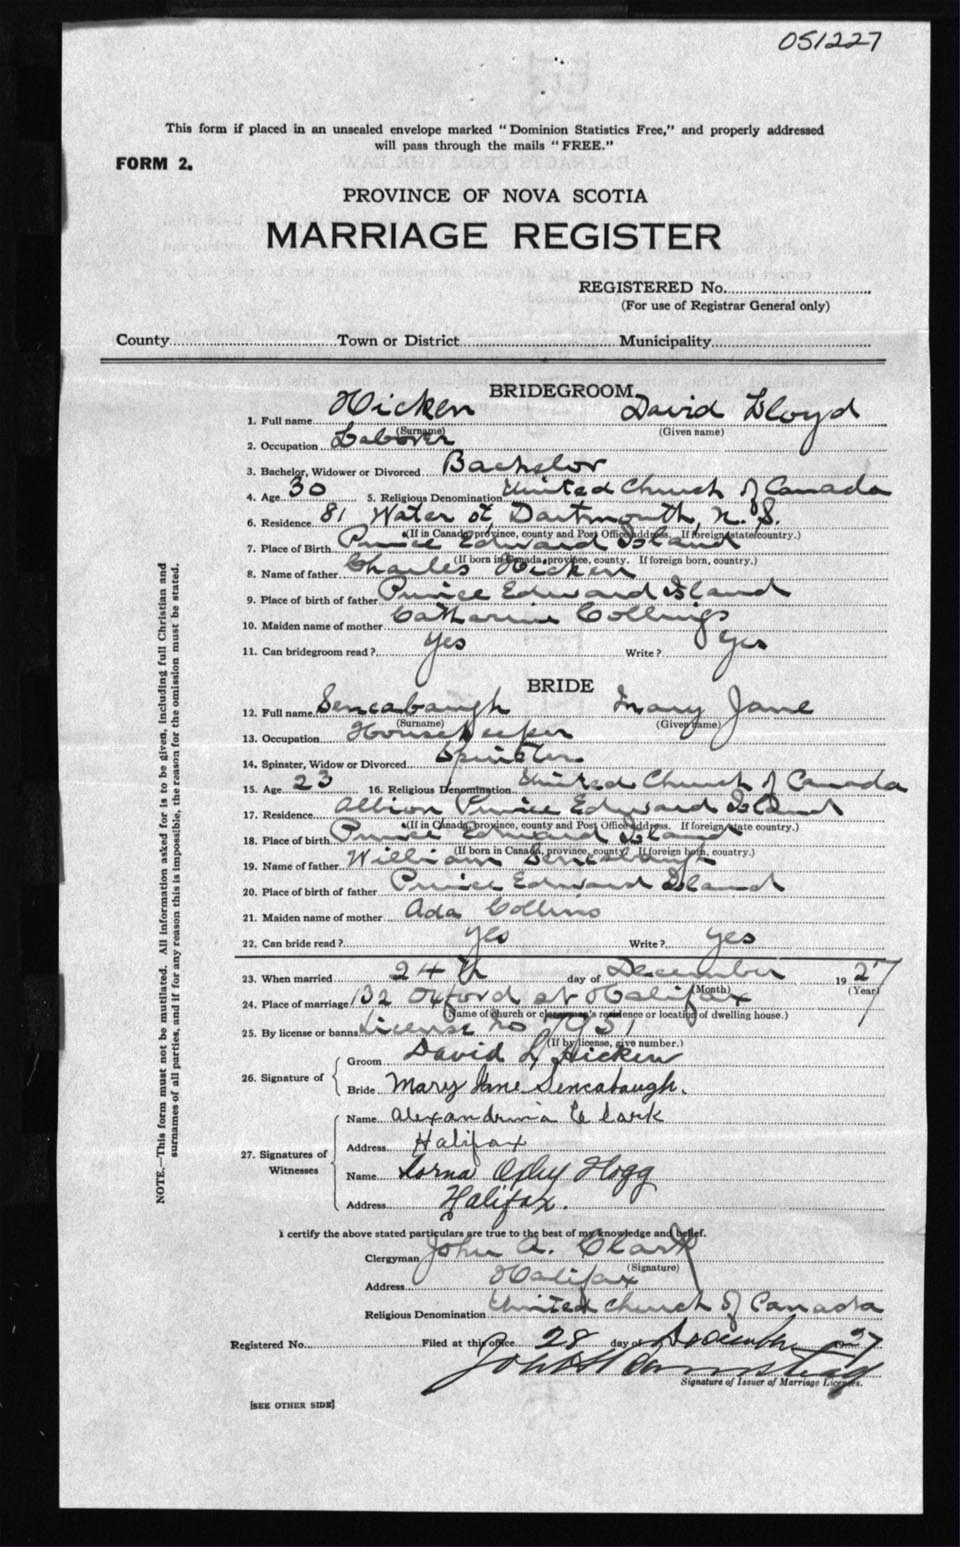 051227
This form if placed in an unsealed envelope marked "Dominion Statistics Free," and properly addressed
will pass through the mails "FREE."
FORM 2.
PROVINCE OF NOVA SCOTIA
MARRIAGE REGISTER
REGISTERED No.
(For use of Registrar General only)
County Town or District Municipality
BRIDEGROOM
1. Full name Hicken David Lloyd
(Surname) (Given name)
2. Occupation Laborer
3. Bachelor, Widower or Divorced Bachelor
4. Age 30 5. Religious Denomination United Church of Canada
6. Residence 81 Water st Dartmouth, N. S.
(If in Canada, province, county and Post Office address. If foreign, state country.)
7. Place of Birth Prince Edward Island
(If born in Canada, province, county. If foreign born, country.)
8. Name of father Charles Hicken
9. Place of birth of father Prince Edward Island
10. Maiden name of mother Catharine Collings
11. Can bridegroom read? Yes Write? Yes
BRIDE
12. Full name Sencabaugh Mary Jane
(Surname) (Given name)
13. Occupation Housekeeper
14. Spinster, Widow or Divorced Spinster
15. Age 23 16. Religious Denomination United Church of Canada
17. Residence Albion Prince Edward Island
(If in Canada, province, county and Post Office address. If foreign, state country.)
18. Place of birth Prince Edward Island
(If born in Canada, province, county. If foreign born, country.)
19. Name of father William Sencabaugh
20. Place of birth of father Prince Edward Island
21. Maiden name of mother Ada Collins
22. Can bride read? Yes Write? Yes
23. When married 24th day of December 1927
(Month) (Year)
24. Place of marriage 132 Oxford st Halifax
(Name of church or clergyman's residence or location of dwelling house.)
25. By license or banns License No 7951
(If by license, give number.)
26. Signature of Groom David L Hicken
Bride Mary Jane Sencabaugh.
27. Signatures of Witnesses Name Alexandrina Clark
Address Halifax
Name Lorna Hogg
Address Halifax.
I certify the above stated particulars are true to the best of my knowledge and belief.
Clergyman John A. Clark
(Signature)
Address Halifax
Religious Denomination United Church of Canada
Registered No. Filed at this office 28 day of December 27
Signature of Issuer of Marriage Licenses.
[SEE OTHER SIDE]
NOTE.—This form must not be mutilated. All information asked for is to be given, including full Christian and
surnames of all parties, and if for any reason this is impossible, the reason for the omission must be stated.